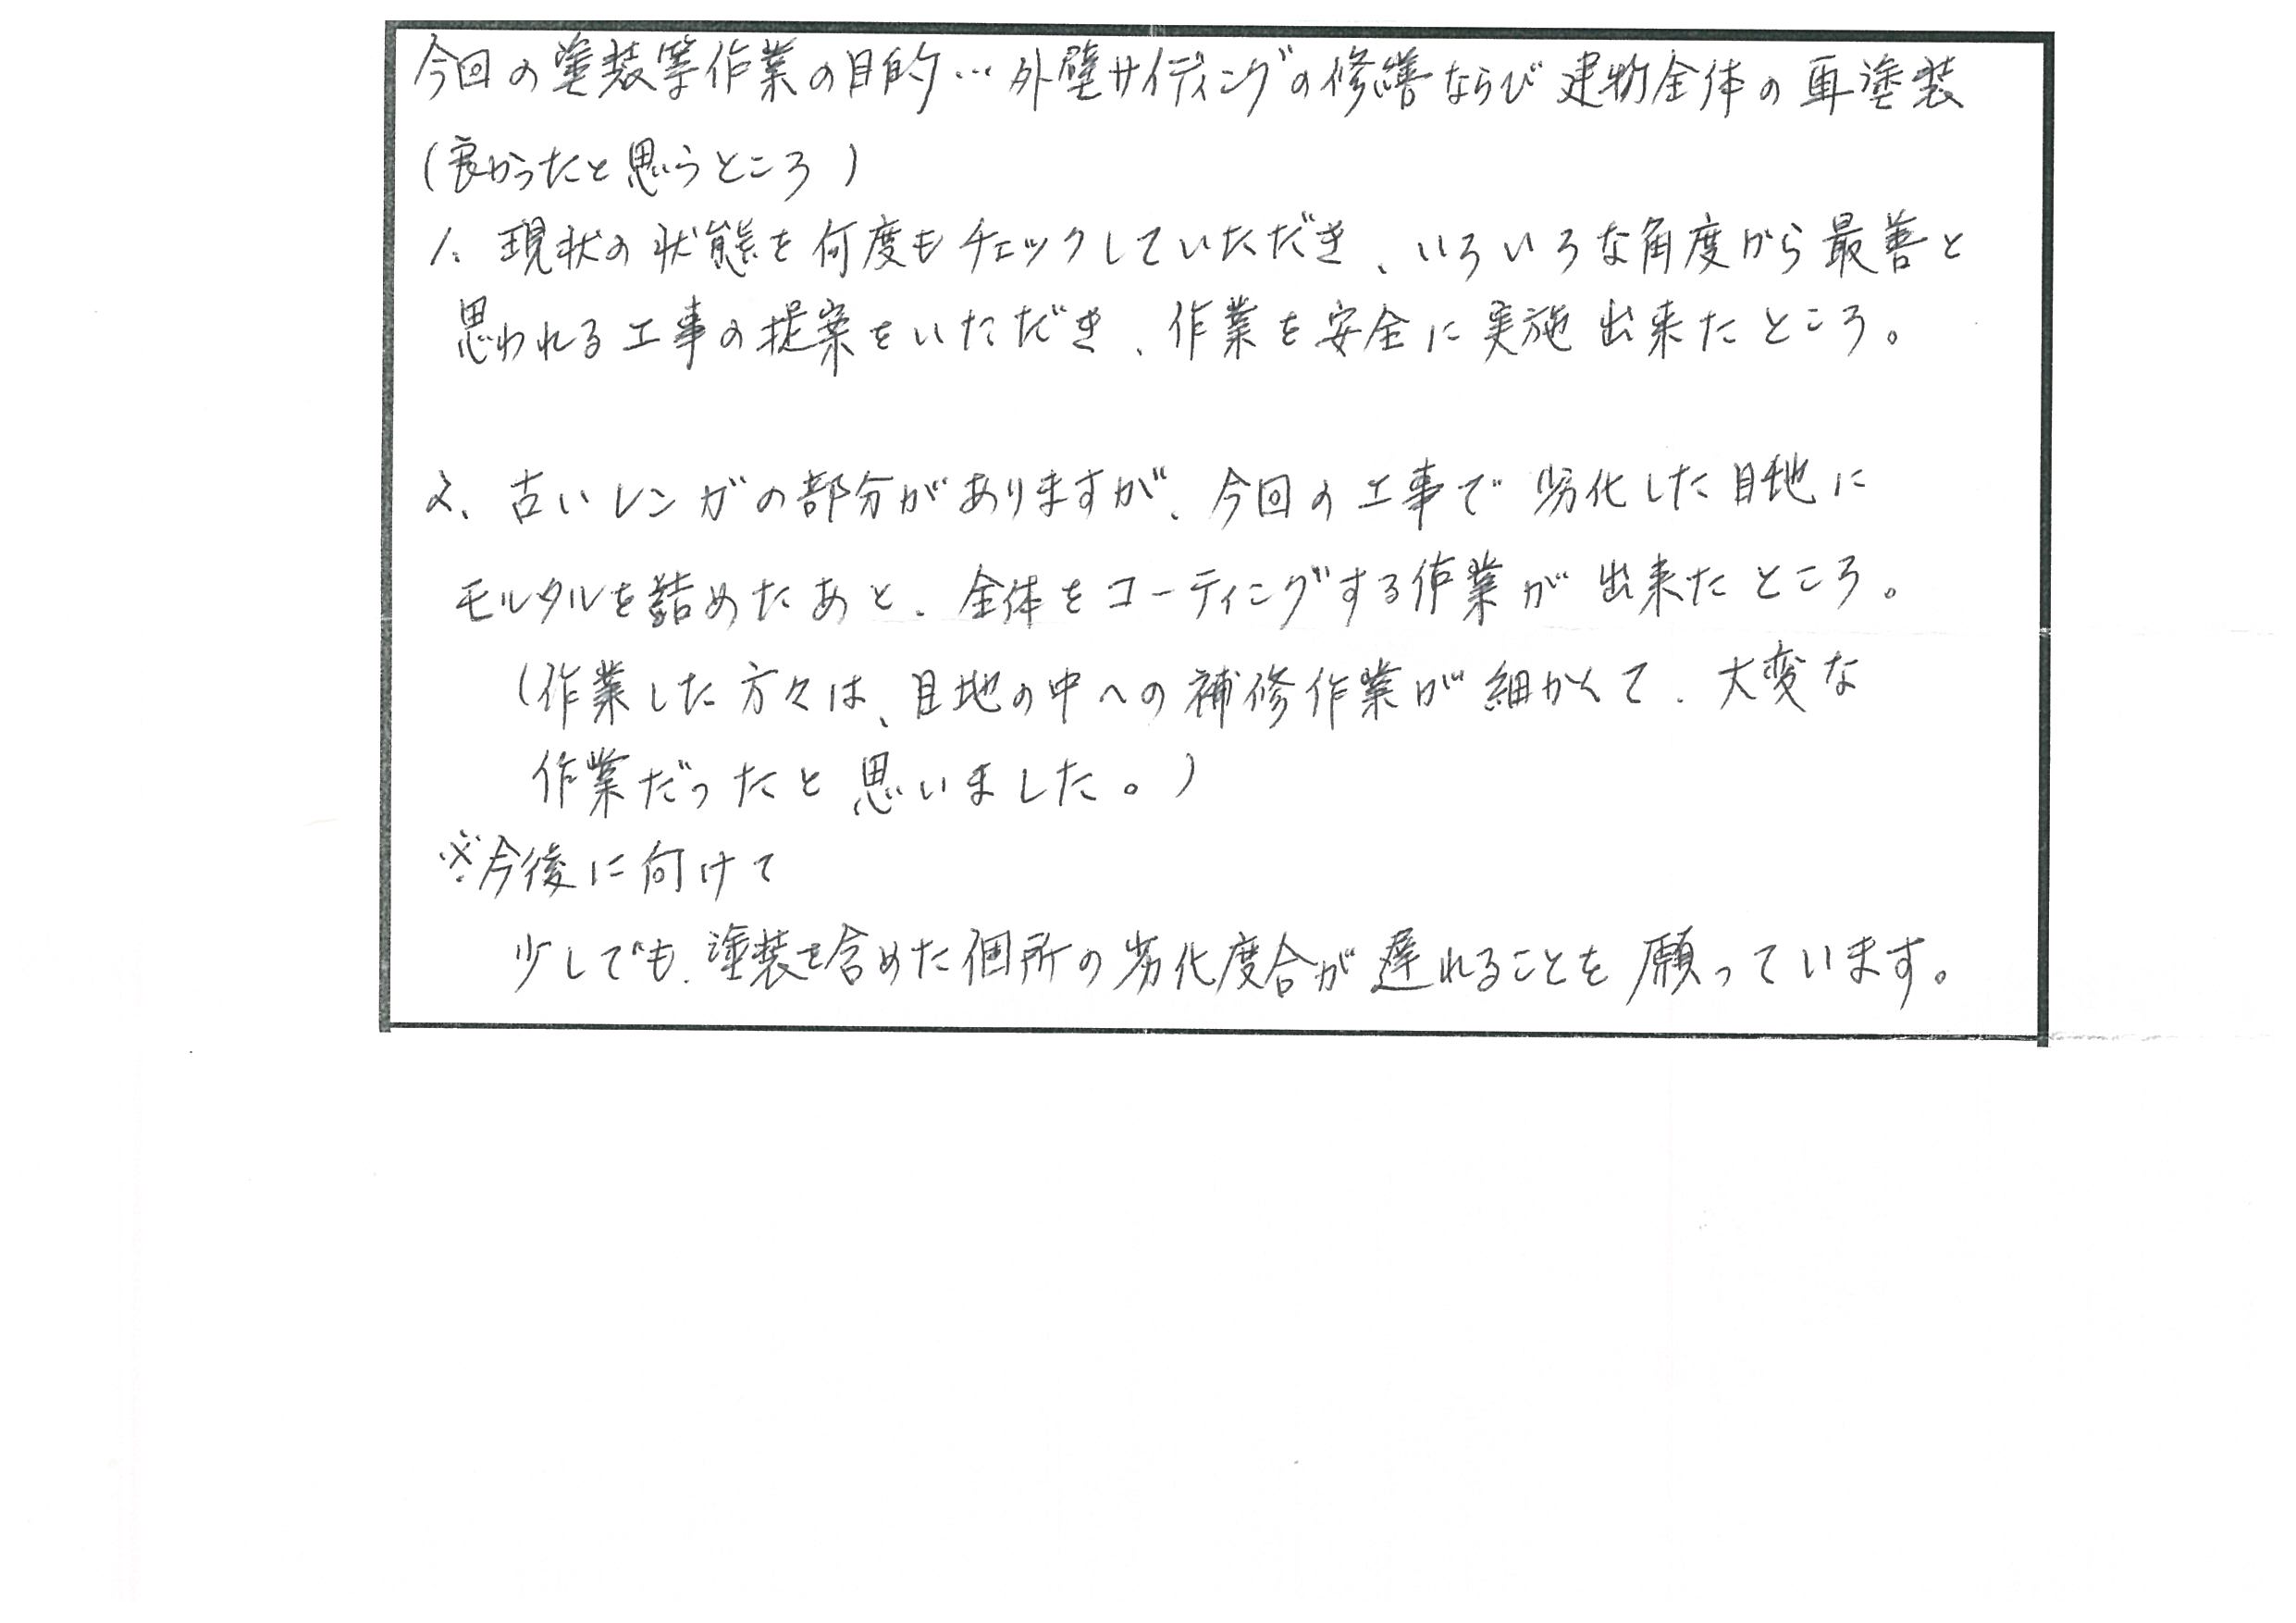 今回の塗装等作業の目的…外壁サイディングの修繕ならび建物全体の再塗装
(良かったと思うところ)
1. 現状の状態を何度もチェックしていただき、いろいろな角度から最善と
思われる工事の提案をいただき、作業を安全に実施出来たところ。
2、古いレンガの部分がありますが、今回の工事で劣化した目地に
モルタルを詰めたあと、全体をコーティングする作業が出来たところ。
(作業した方々は、目地の中への補修作業が細かくて、大変な
作業だったと思いました。)
※今後に向けて
少しでも、塗装を含めた個所の劣化度合が遅れることを願っています。